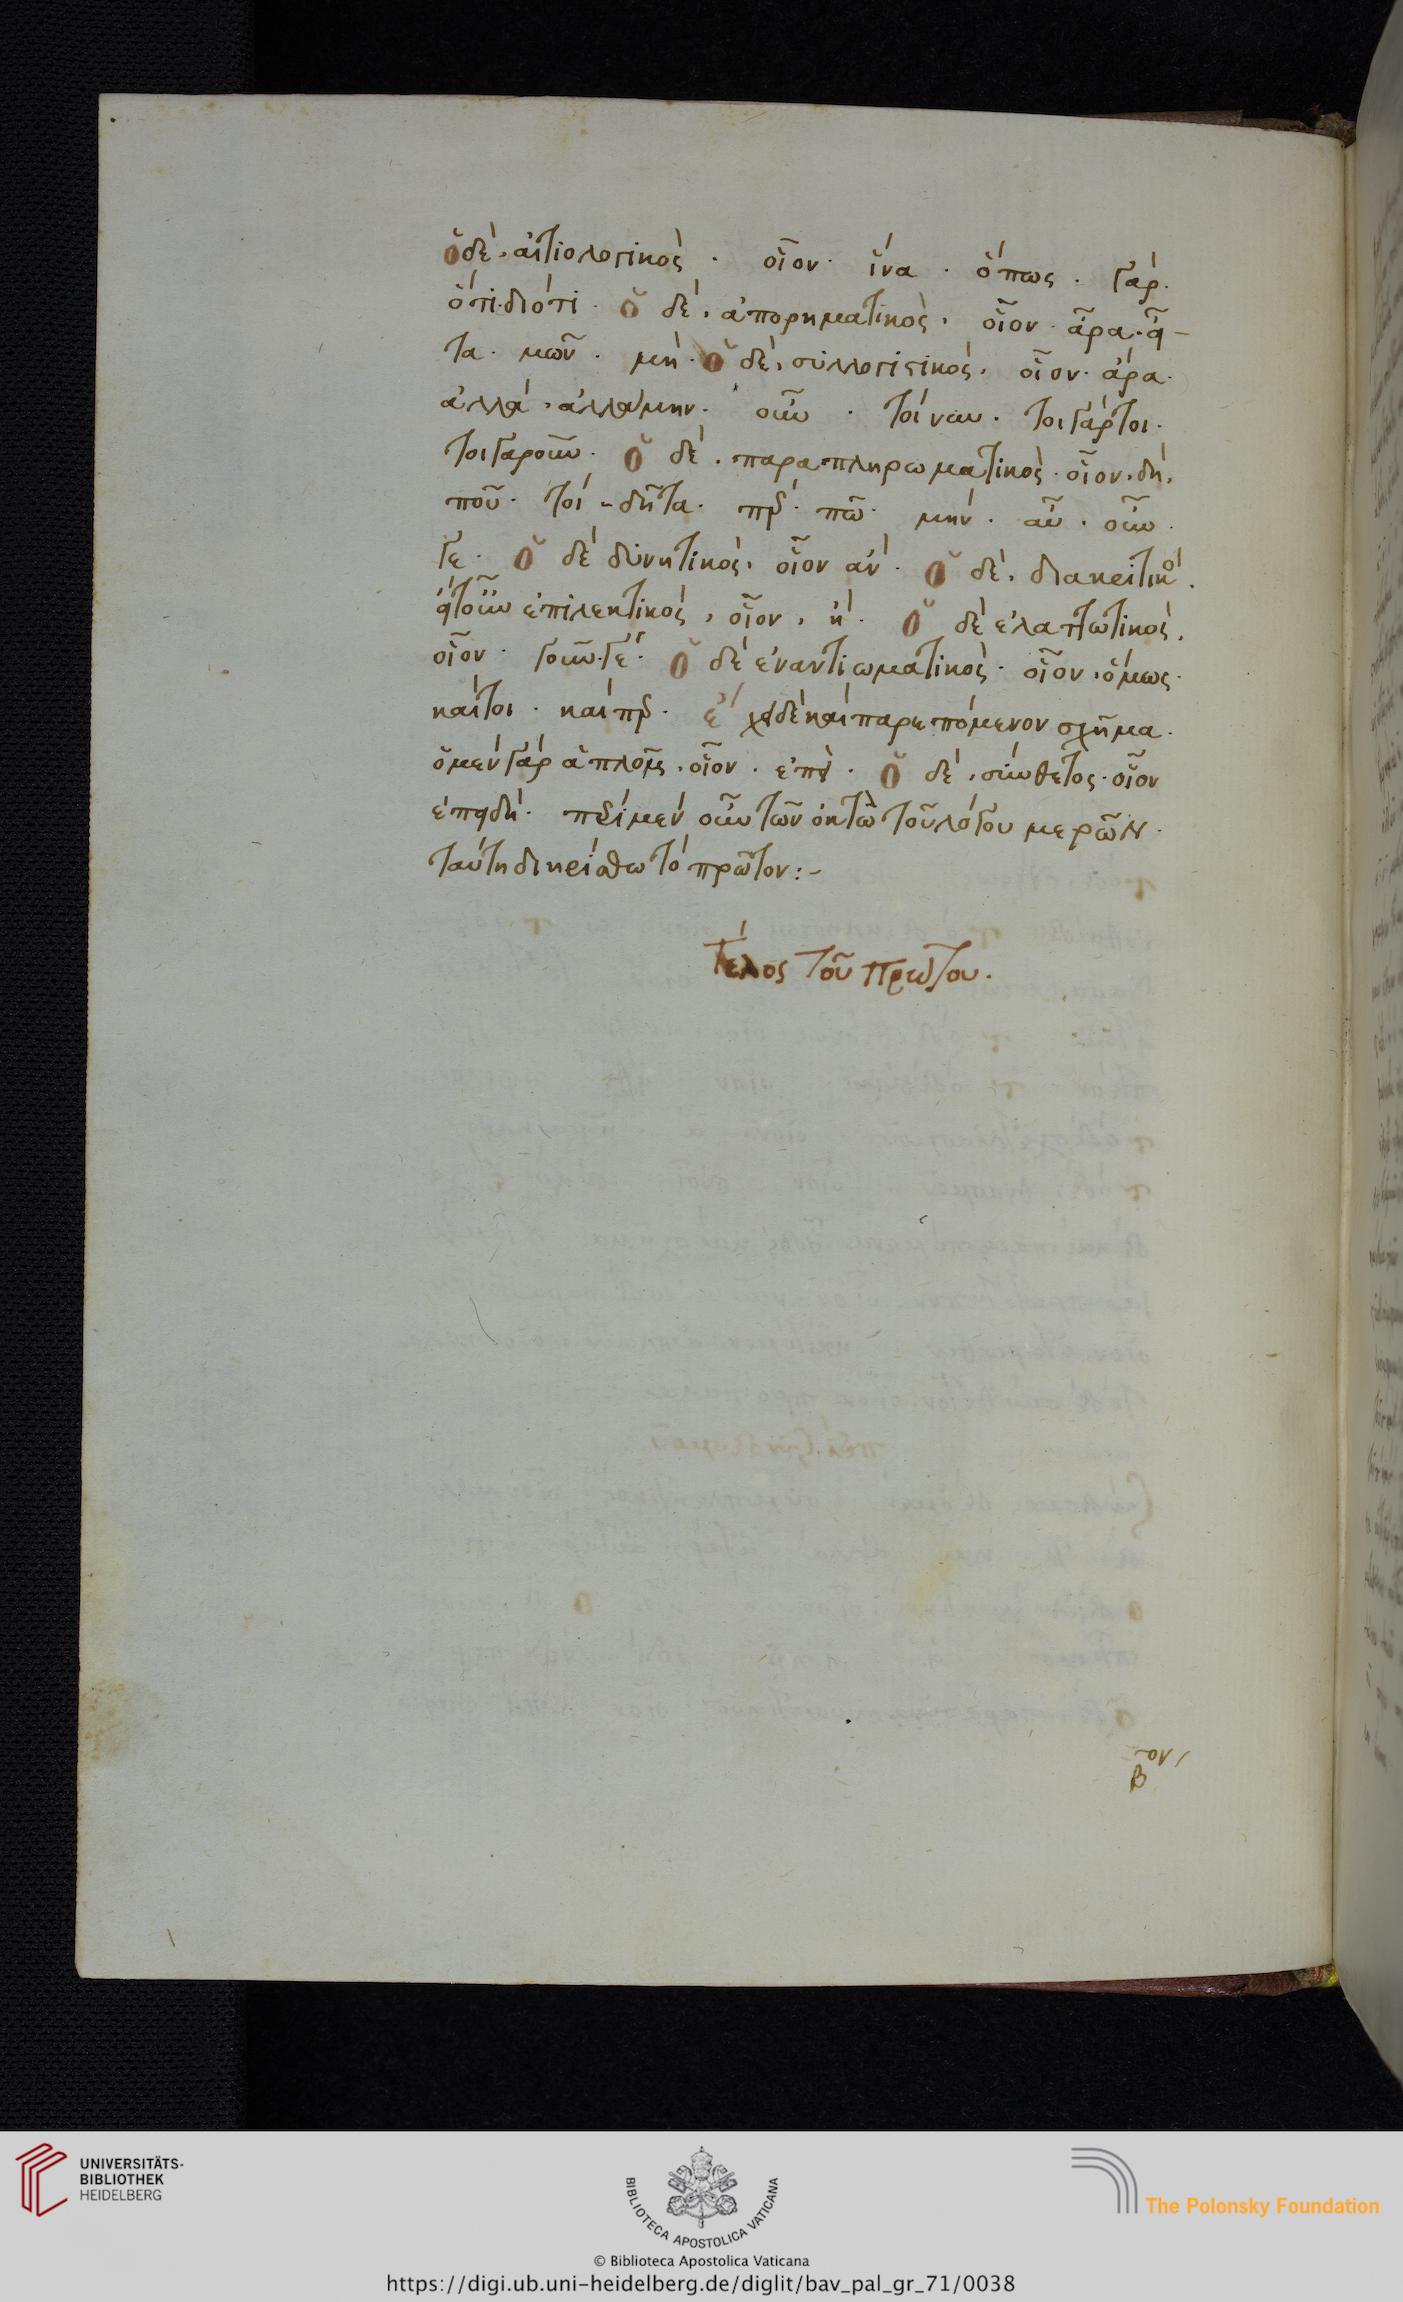 ὁ δὲ, αἰτιολογικὸς · οἷον · ἵνα · ὅπως · γὰρ ·
ὅτι · διότι · ὁ δὲ, ἀπορηματικὸς, οἷον · ἆρα · εἶ-
τα · μῶν · μὴ · ὁ δὲ, συλλογιστικὸς, οἷον · ἄρα ·
ἀλλὰ, ἀλλαμὴν · οὖν · τοίνυν · τοιγάρτοι ·
τοιγαροῦν · ὁ δὲ, παραπληρωματικὸς · οἷον, δὴ,
ποῦ · τοί - δῆτα · περ · πῶ · μὴν · αὖ · οὖν ·
γε · ὁ δὲ δυνητικὸς, οἷον ἂν · ὁ δὲ, διακριτικὸ ·
εἴτουν ἐπιλεκτικὸς, οἷον, ἢ · ὁ δὲ ἐλαττωτικὸς,
οἷον · γοῦν · γέ · ὁ δὲ ἐναντιωματικὸς · οἷον, ὅμως ·
καίτοι · καίπερ · ἔχει δὲ καὶ παρεπόμενον σχῆμα ·
ὁ μὲν γὰρ ἁπλοῦς, οἷον · ἐπεὶ · ὁ δὲ, σύνθετος · οἷον
ἐπειδὴ · περὶ μὲν οὖν τῶν ὀκτὼ τοῦ λόγου μερῶν ·
ταύτη διῃρήσθω τὸ πρῶτον :-
Τέλος τοῦ πρώτου.
β̅ον
UNIVERSITÄTS-
BIBLIOTHEK
HEIDELBERG
BIBLIOTECA APOSTOLICA VATICANA
The Polonsky Foundation
© Biblioteca Apostolica Vaticana
https://digi.ub.uni-heidelberg.de/diglit/bav_pal_gr_71/0038